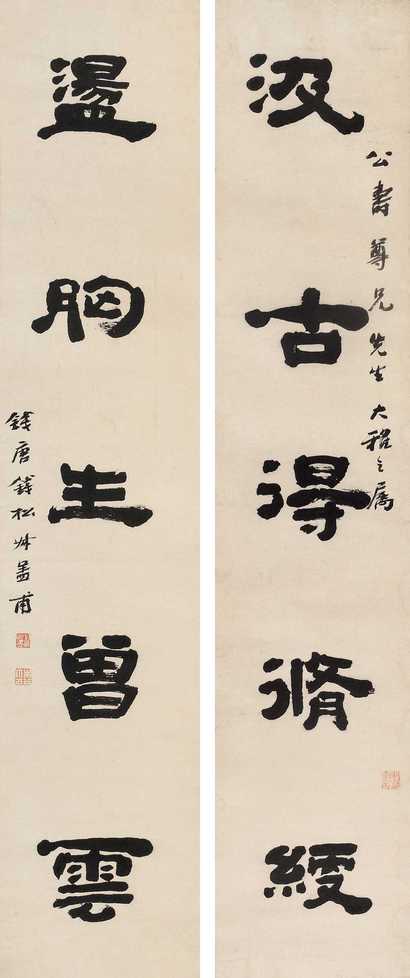 公壽尊兄先生大雅之屬
汲古得脩綆
盪胸生曾雲
錢唐錢松叔蓋甫